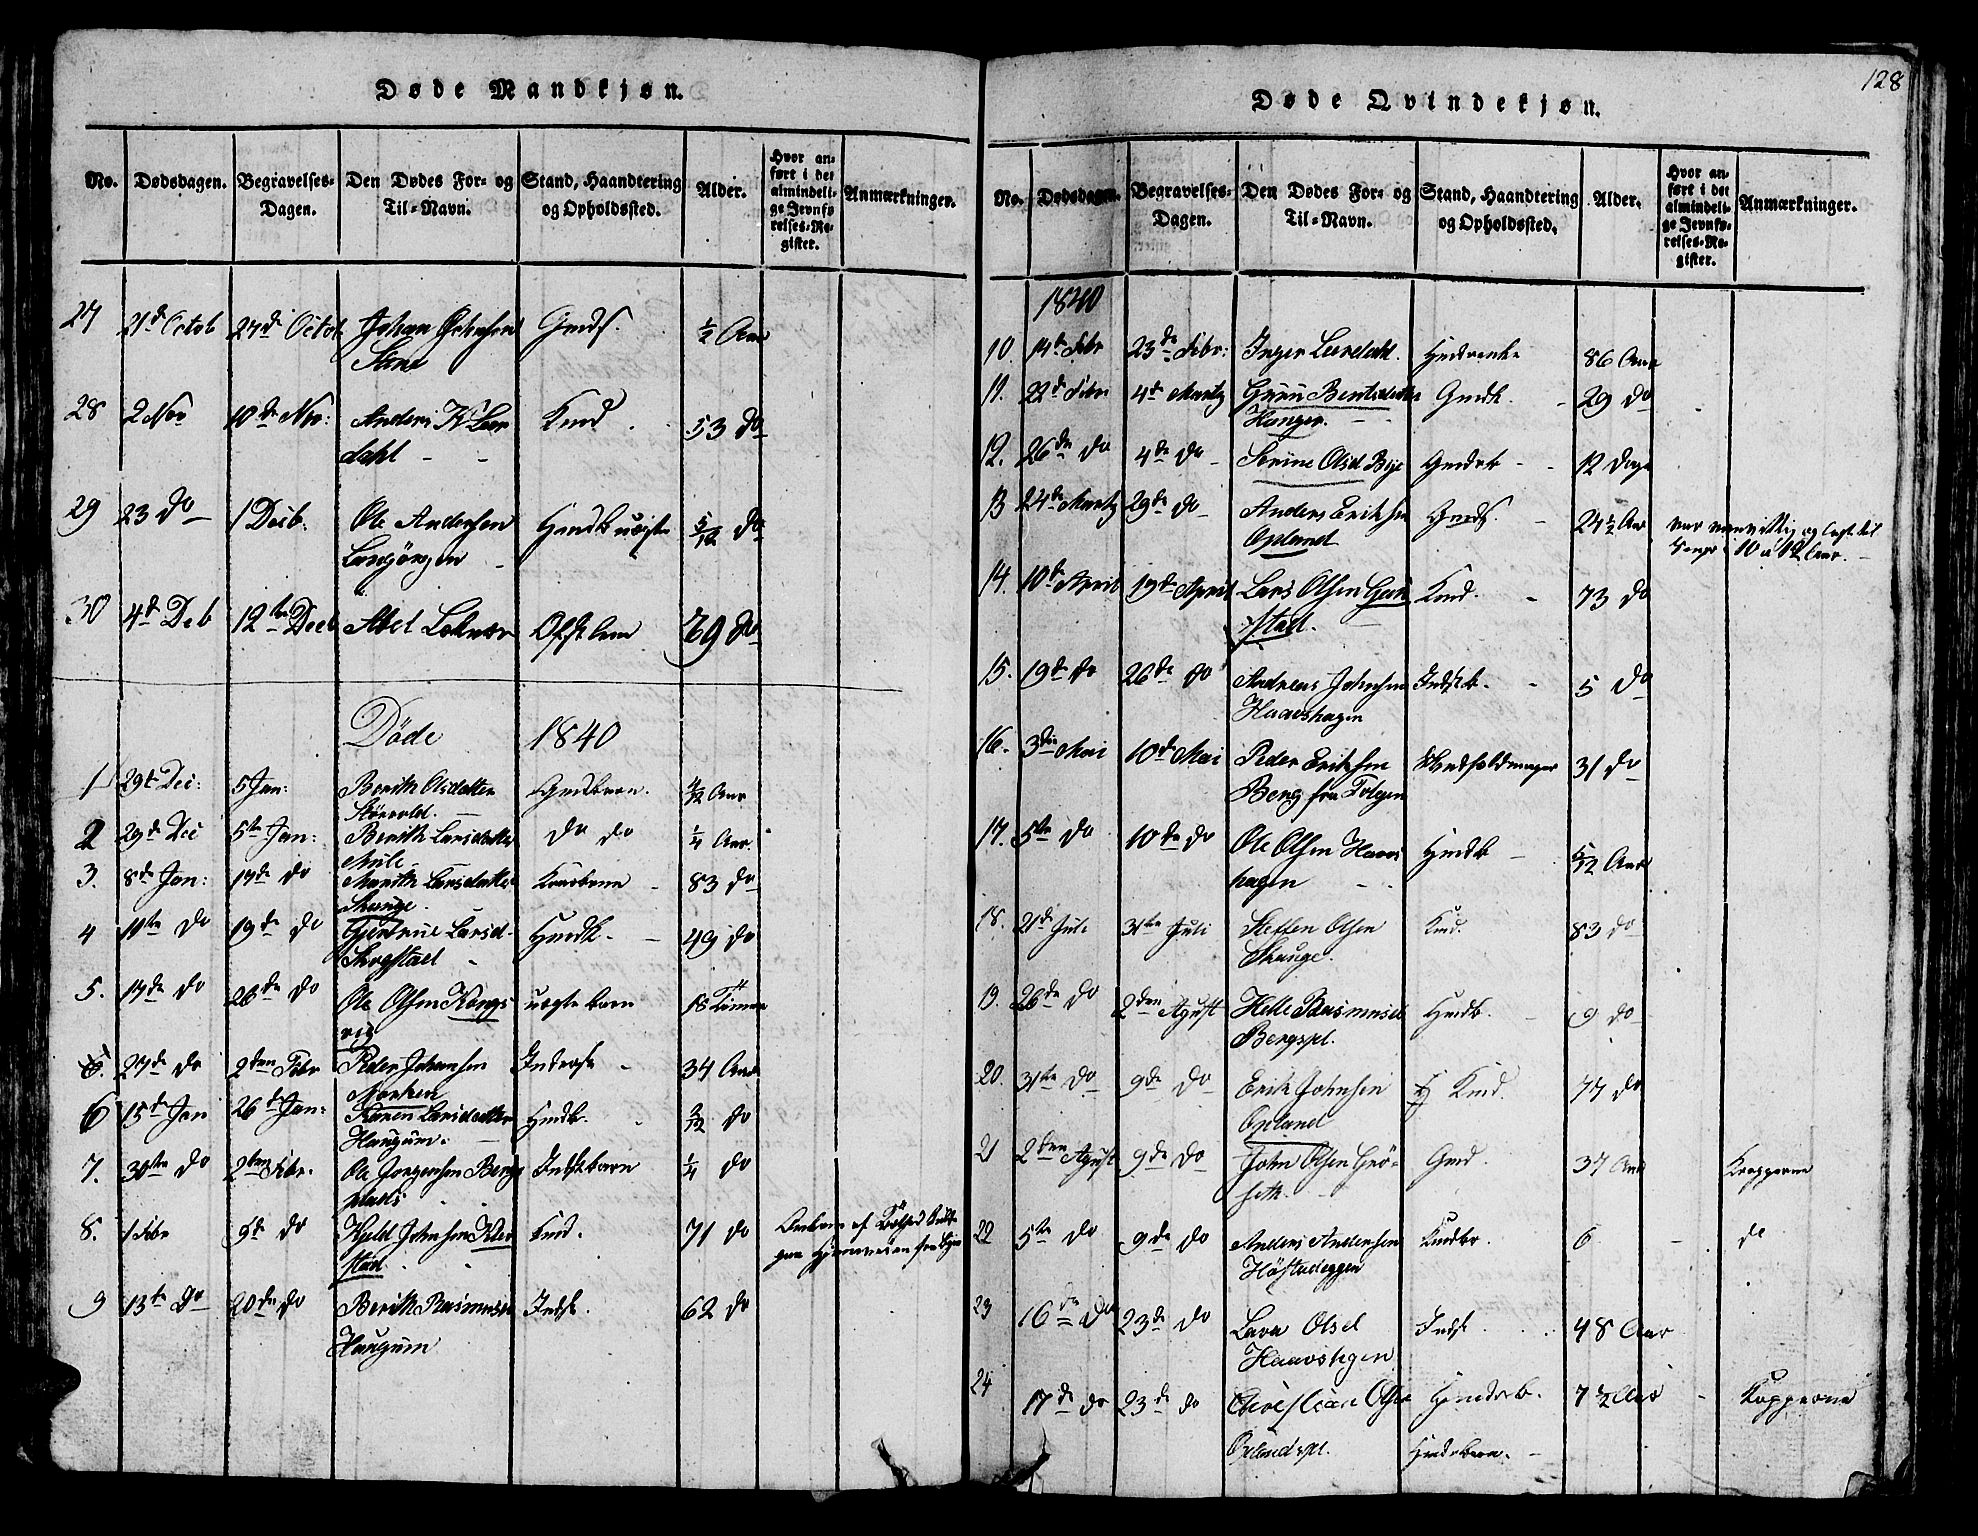 Døde Mandkjøn.
No. Dødsdagen. Begravelses-Dagen. Den Dødes For- og Til-Navn. Stand, Haandtering og Opholdssted. Alder. Hvor anført i det almindelige Jevnførelses-Register. Anmærkninger.
27 21d Octob 27d Octob Johan Johnsen ½ Aar
28 2 Nov 10de Nov: Anders K Leer
dahl - - Kmd 53 do
29 23 do 1 Decb. Ole Andersen
5/12 do
30 4d Deb 12te Decb Abel 79 do
Døde 1840
1 29d Dec: 5 Jan: Berith Olsdatter
Gmdbarn. 4/12 Aar
2 29d Dec 5te Jan: Berith Larsdatter
Mule do do ¼ Aar.
3. 8de Jan: 17de do Marith Larsdatter
Skauge. 83 do
4 11te do 19de do Gjertrue Larsd-
Hmdk. 49 do
5. 17de do 26de do Ole Olsen Kongs
vig uegte barn 18 Timer
6. 27de do 2den Febr Peder Johansen
Inderst 34 Aar
6 15d Jan 26d Jan: Karen Larsdatter
Haugum. Hmdb. 3/12 do
7. 30te do 2den Febr. Ole Jorgensen Bergs
Indstbarn ¼ do
8. 1 Febr 9de do Kjeld Johnsen
stad Kmd. 71 do
9 13te do 20de do Berith Rasmusd
Haugum Indst. 62 do
128
Døde Qvindekjøn.
No. Dødsdagen. Begravelses-Dagen. Den Dødes For- og Til-Navn. Stand, Haandtering og Opholdssted. Alder. Hvor anført i det almindelige Jevnførelses-Register. Anmærkninger.
1840
10. 14de Febr 23de Febr: Inger Leerdahl. Hmdenke 86 Aar
11. 22de Febr 4de Martz Guru Bentsdatter
Hanger. Gmdk. 29 do
12. 26de do 4de do Serine Olsd Bye Gmdsb 12 Dage
13 24de Martz 29de do Anders Eriksen
Opland Gmds. 27½ Aar var vanvittig og lagt til
Sengs i 10 a 12 Aar.
14. 10de April 19de April Lars Olsen
stad. Kmd. 73 do
15. 19de do 26de do Andreas Johnsen
Haavshagen Indstb. 5 do
16. 3die Mai 10de Mai Peder Eriksen
Berg fra Tolgen 31 do
17. 5te do 10de do Ole Olsen Haavs
hagen Hmdb 5/12 Aar
18. 21de Juli 31te Juli Steffen Olsen
Skauge. Kmd. 83 do
19. 26de do 2den Agust Helle Rasmusd
Bergspl. Hmdb. 9 do
20. 31te do 9de do Erik Johnsen
Opland Kmd. 77 do
21 2den Agust 9de do John Olsen Grö-
seth. Gmd. 37 Aar Kopperne
22 5te do 9de do Anders Andersen
Höstadeggen Kmdbr. 6 do
23 16de do 23de do Lava Olsd
Haavshagen Indst. 48 Aar
24 17de do 23de do Christian Olsen
Oplandspl. Hmdsb.
Hmdsbarn. 7½ Aar Kopperne